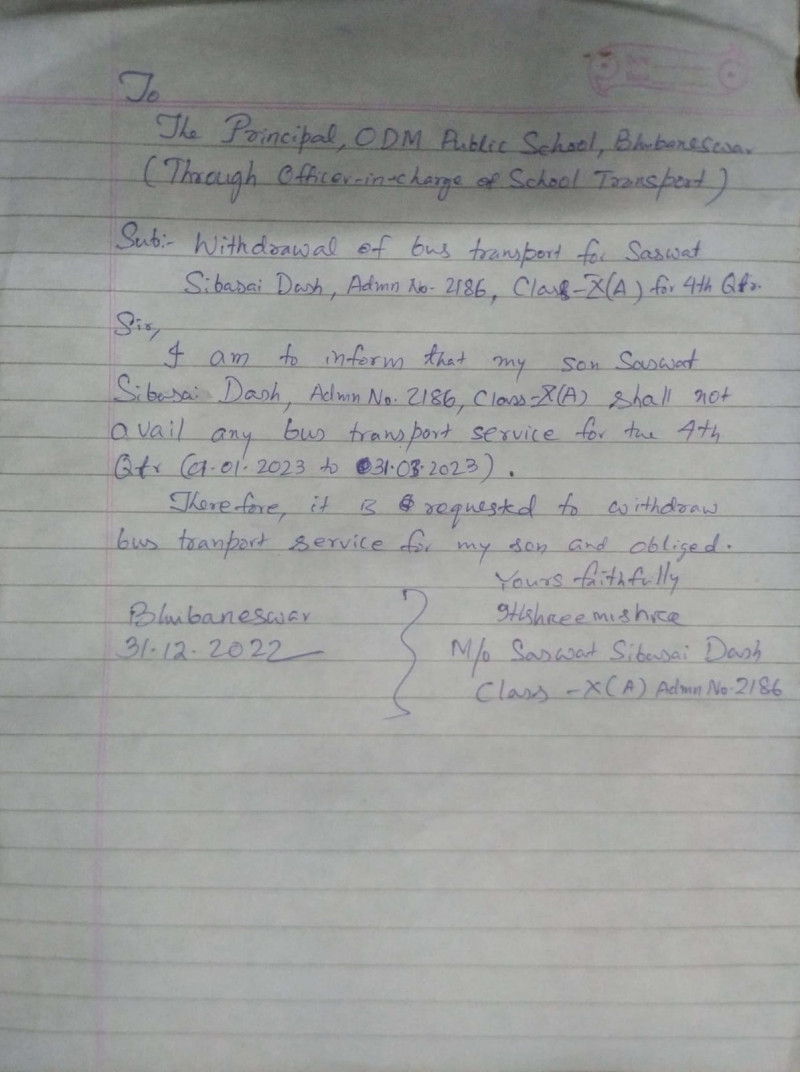 To
The Principal, ODM Public School, Bhubaneswar
(Through Officer-in-charge of School Transport)
Sub:- Withdrawal of bus transport for Saswat
Sibasai Dash, Admn No- 2186, Class-X(A) for 4th Qtr.
Sir,
I am to inform that my son Saswat
Sibasai Dash, Admn No. 2186, Class-X(A) shall not
avail any bus transport service for the 4th
Qtr (01.01.2023 to 31.03.2023).
Therefore, it is requested to withdraw
bus tranport service for my son and obliged.
Yours faithfully
Bhubaneswar
31.12.2022
M/o Saswat Sibasai Dash
Class -X(A) Admn No.2186